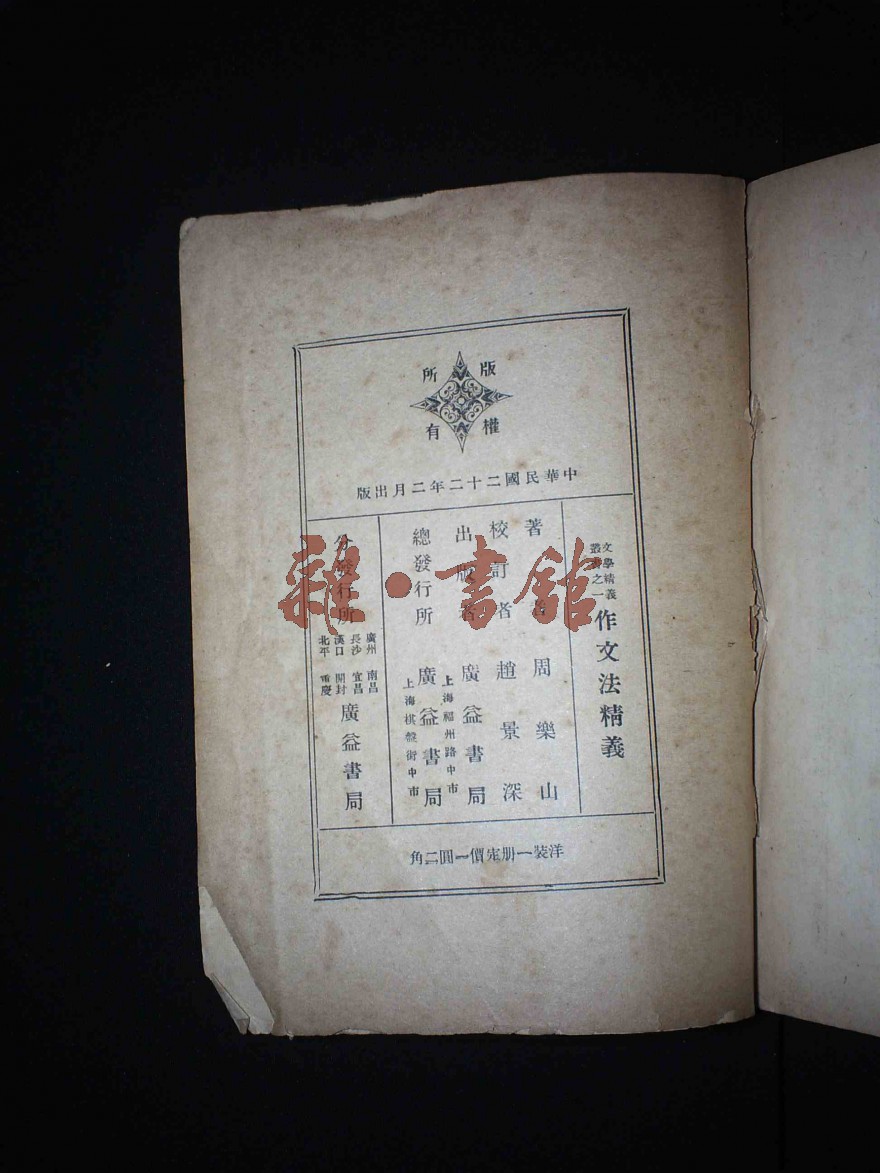 版權所有
中華民國二十二年二月出版
文學精義
叢書之一
作文法精義
著者 周樂山
校訂者 趙景深
出版者 廣益書局
上海福州路中市
總發行所 廣益書局
上海棋盤街中市
分發行所 廣益書局
廣州 南昌
長沙 宜昌
漢口 開封
北平 重慶
洋裝一册定價一圓二角
雜·書館